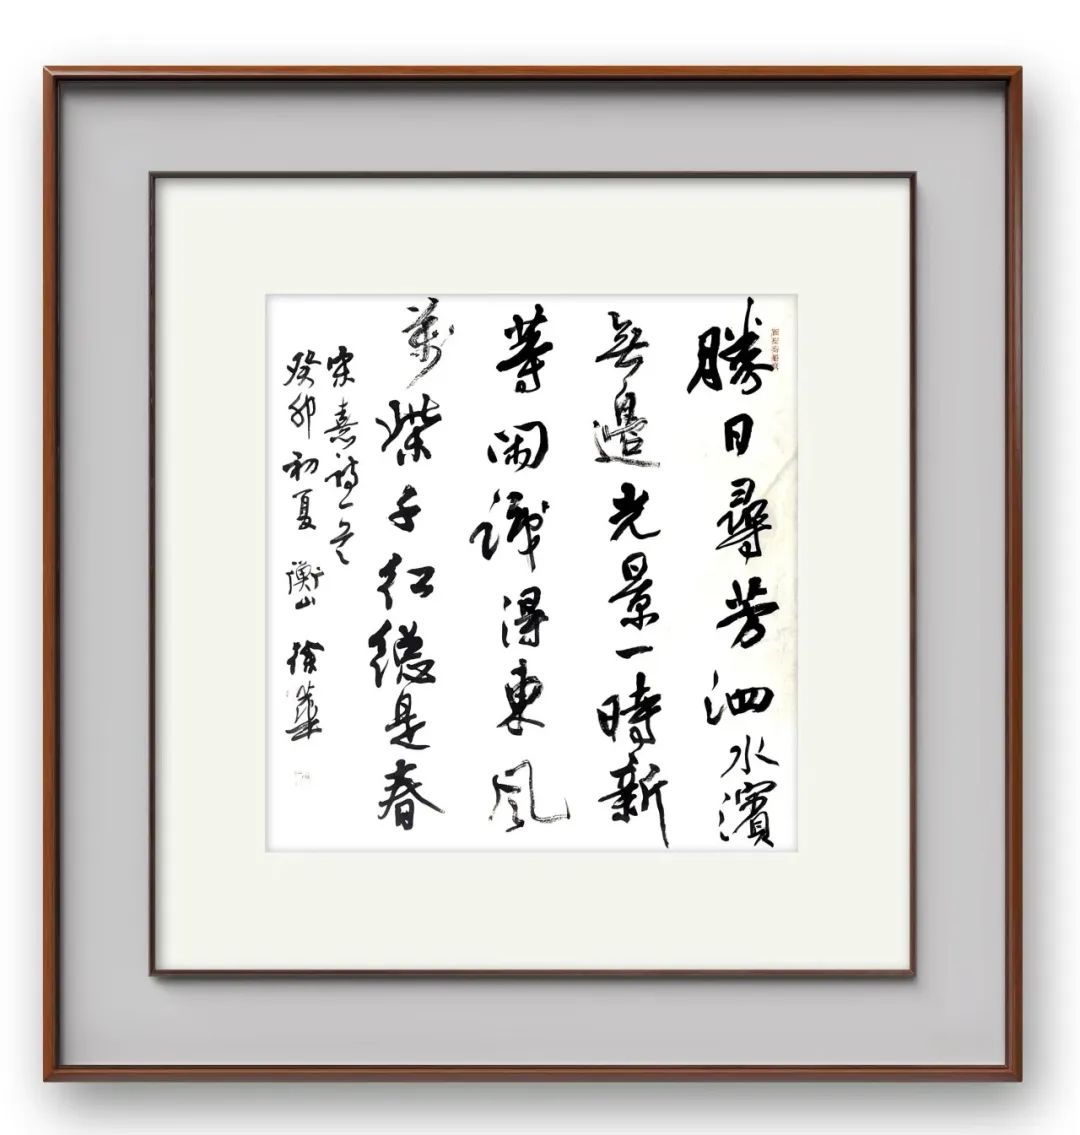 勝日尋芳泗水濱
無邊光景一時新
等閑識得東風
萬紫千紅總是春
宋熹詩一首
癸卯初夏 衡山 徐華